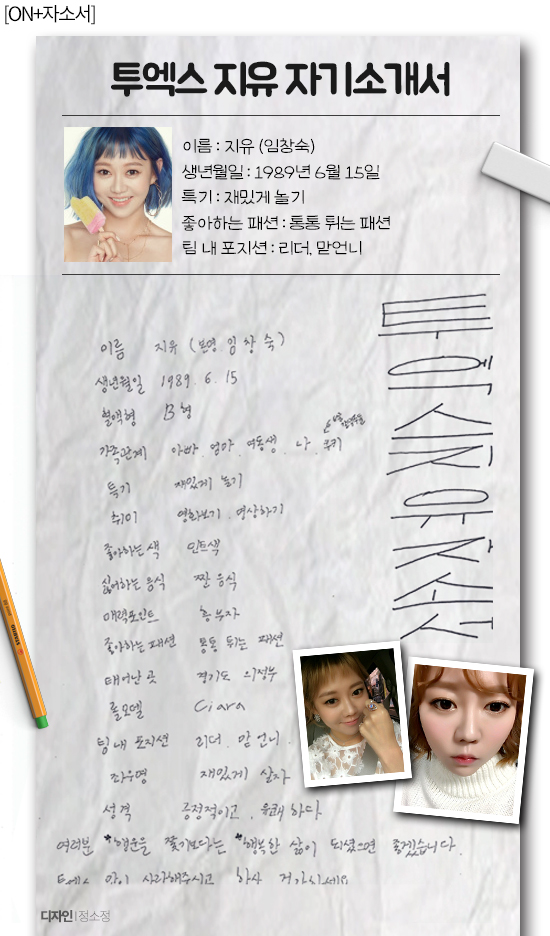 [ON+자소서]
투엑스 지유 자기소개서
이름 : 지유 (임창숙)
생년월일 : 1989년 6월 15일
특기 : 재밌게 놀기
좋아하는 패션 : 통통 튀는 패션
팀 내 포지션 : 리더, 맏언니
이름 지유 (본명 임창숙)
생년월일 1989. 6. 15
혈액형 B형
가족관계 아빠, 엄마, 여동생, 나, 쿠키
특기 재밌게 놀기
취미 영화보기, 명상하기
좋아하는 색 민트색
싫어하는 음식 짠 음식
매력포인트 흥부자
좋아하는 패션 통통 튀는 패션
태어난 곳 경기도 의정부
롤모델 Ciara
팀내 포지션 리더, 맏언니
좌우명 재밌게 살자
성격 긍정적이고, 유쾌하다
여러분 *행운을 쫓기보다는 *행복한 삶이 되셨으면 좋겠습니다.
투엑스 많이 사랑해주시고 항상 건강하세요
디자인 | 정소정